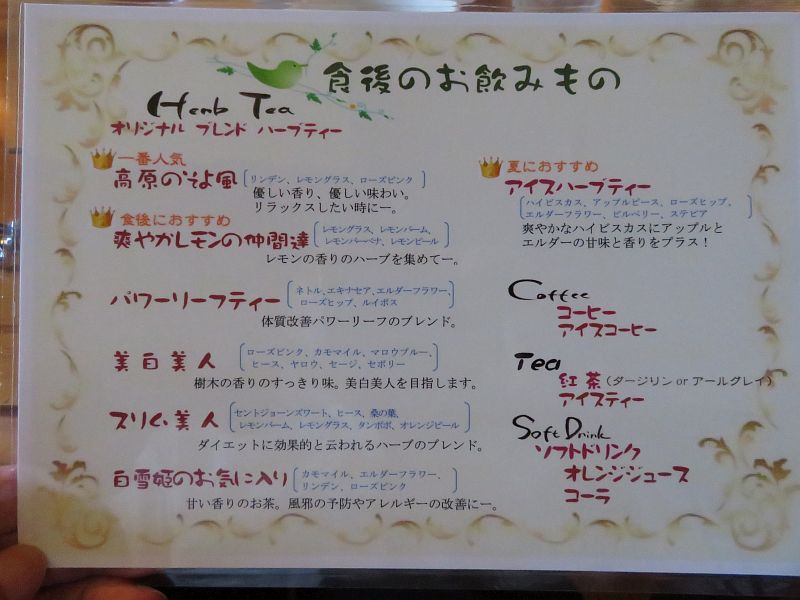 食後のお飲みもの
Herb Tea
オリジナル ブレンド ハーブティー
一番人気
高原のそよ風 [リンデン、レモングラス、ローズピンク]
優しい香り、優しい味わい。
リラックスしたい時にー。
食後におすすめ
爽やかレモンの仲間達 [レモングラス、レモンバーム、
レモンバーベナ、レモンピール]
レモンの香りのハーブを集めてー。
パワーリーフティー [ネトル、エキナセア、エルダーフラワー、
ローズヒップ、ルイボス]
体質改善パワーリーフのブレンド。
美白美人 [ローズピンク、カモマイル、マロウブルー、
ヒース、ヤロウ、セージ、セボリー]
樹木の香りのすっきり味。美白美人を目指します。
スリム美人 [セントジョーンズワート、ヒース、桑の葉、
レモンバーム、レモングラス、タンポポ、オレンジピール]
ダイエットに効果的と云われるハーブのブレンド。
白雪姫のお気に入り [カモマイル、エルダーフラワー、
リンデン、ローズピンク]
甘い香りのお茶。風邪の予防やアレルギーの改善にー。
夏におすすめ
アイスハーブティー
[ハイビスカス、アップルピース、ローズヒップ、
エルダーフラワー、ビルベリー、ステビア]
爽やかなハイビスカスにアップルと
エルダーの甘味と香りをプラス！
Coffee
コーヒー
アイスコーヒー
Tea
紅茶(ダージリン or アールグレイ)
アイスティー
Soft Drink
ソフトドリンク
オレンジジュース
コーラ